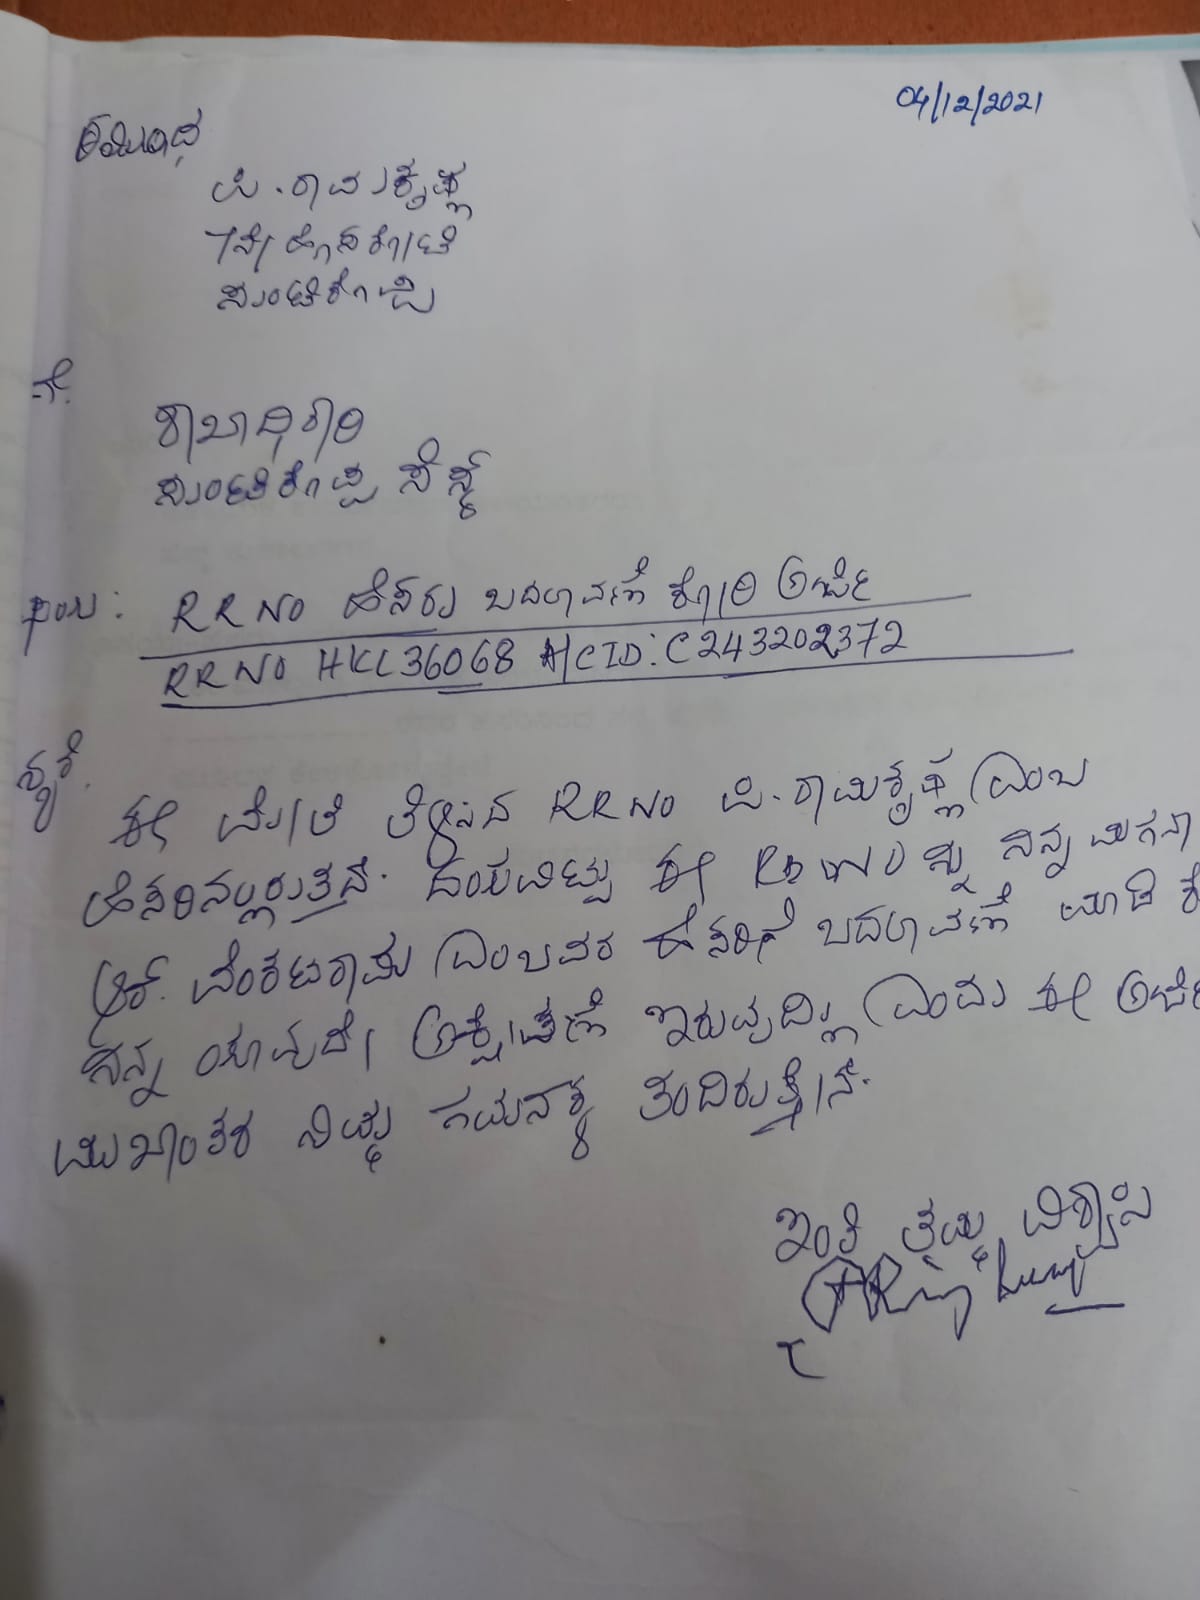 04/12/2021
ಇಂದ
ಪಿ. ರಾಮಕೃಷ್ಣ
7ನೇ ಹೊಸಕೋಟೆ
ಸುಂಟಿಕೊಪ್ಪ
ಗೆ.
ಶಾಖಾಧಿಕಾರಿ
ಸುಂಟಿಕೊಪ್ಪ ಸೆಸ್ಕ್
RR NO ಹೆಸರು ಬದಲಾವಣೆ ಕೋರಿ ಅರ್ಜಿ
RR NO HKL36068 A/C ID: C243202372
ಈ ಮೇಲೆ ತಿಳಿಸಿದ RR NO ಪಿ. ರಾಮಕೃಷ್ಣ ಎಂಬ
ಹೆಸರಿನಲ್ಲಿರುತ್ತದೆ. ದಯವಿಟ್ಟು ಈ RR NO ನ್ನು ನನ್ನ ಮಗನಾ
ಆರ್. ವೆಂಕಟರಾಮು ಎಂಬವರ ಹೆಸರಿಗೆ ಬದಲಾವಣೆ ಮಾಡಿ
ನನ್ನ ಯಾವುದೇ ಆಕ್ಷೇಪಣೆ ಇರುವುದಿಲ್ಲ ಎಂದು ಈ ಅರ್ಜಿ
ಮುಖಾಂತರ ನಿಮ್ಮ ಗಮನಕ್ಕೆ ತಂದಿರುತ್ತೇನೆ.
ಇಂತಿ ತಮ್ಮ ವಿಶ್ವಾಸಿ